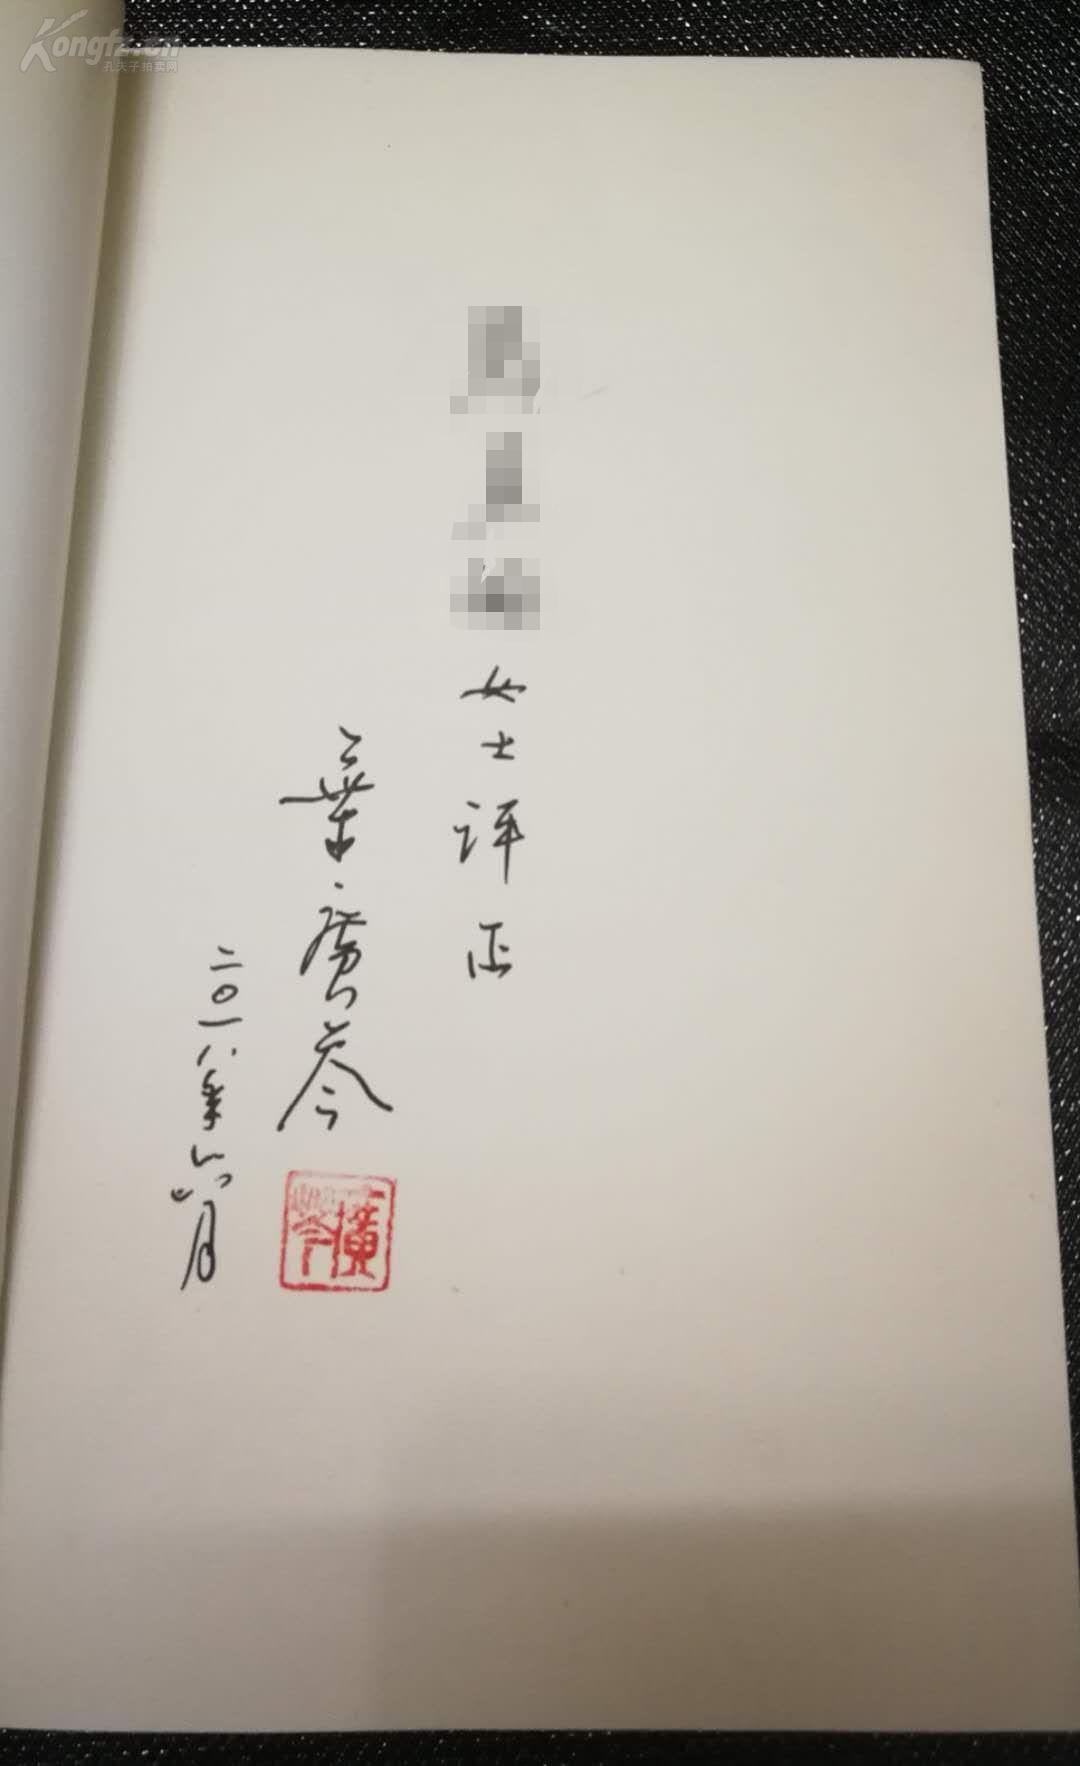 Kongfz.cn
孔夫子拍卖网
女士评正
葉廣芩
二〇一八年六月
廣芩